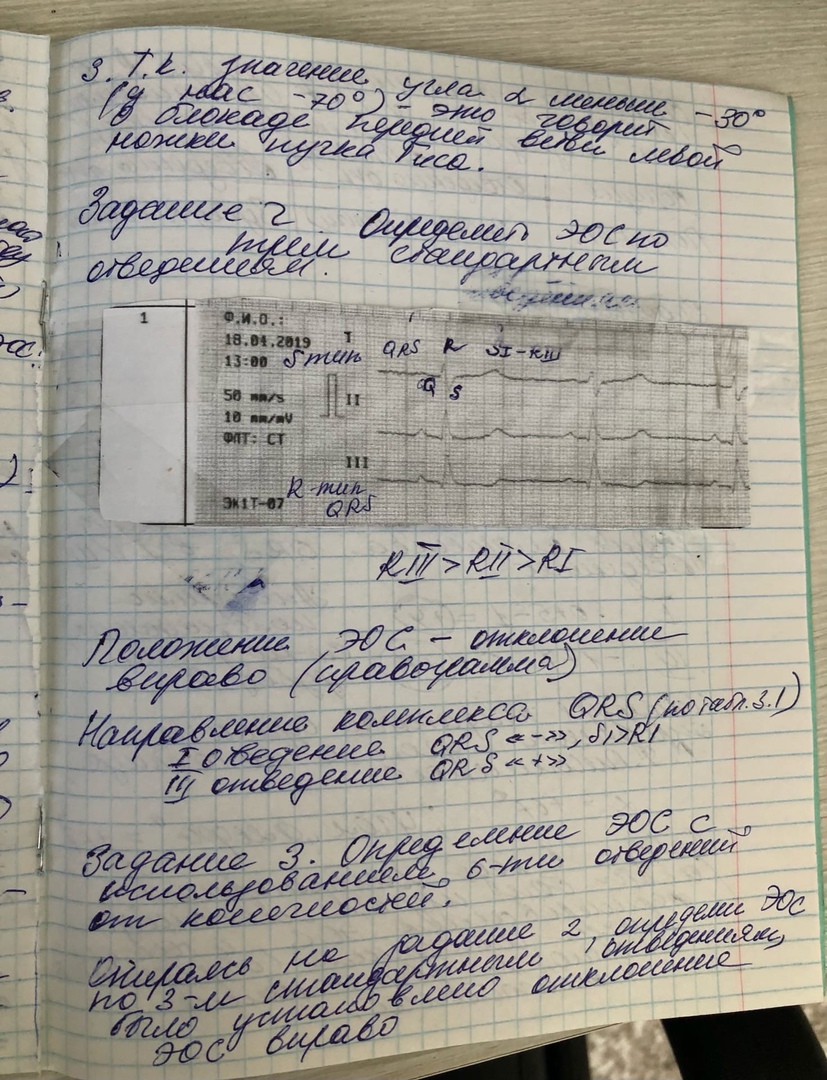 3. Т.к. значение угла α меньше -30°
(у нас -70°) - это говорит
о блокаде передней ветви левой
ножки пучка Гиса.
Задание 2 Определить ЭОС по
трем стандартным
отведениям.
1
Ф.И.О.:
18.04.2019
13:00
50 mm/s
10 mm/mV
ФЛТ: СТ
ЭК1Т-07
I
II
III
S тип QRS R SI-RIII
Q S
R-тип
QRS
RIII>RII>RI
Положение ЭОС - отклонение
вправо (правограмма)
Направление комплекса QRS (по табл.3.1)
I отведение QRS «-», SI>RI
III отведение QRS «+»
Задание 3. Определение ЭОС с
использованием 6-ти отведений
от конечностей.
Опираясь на задание 2, определи ЭОС
по 3-м стандартным отведениям,
было установлено отклонение
ЭОС вправо